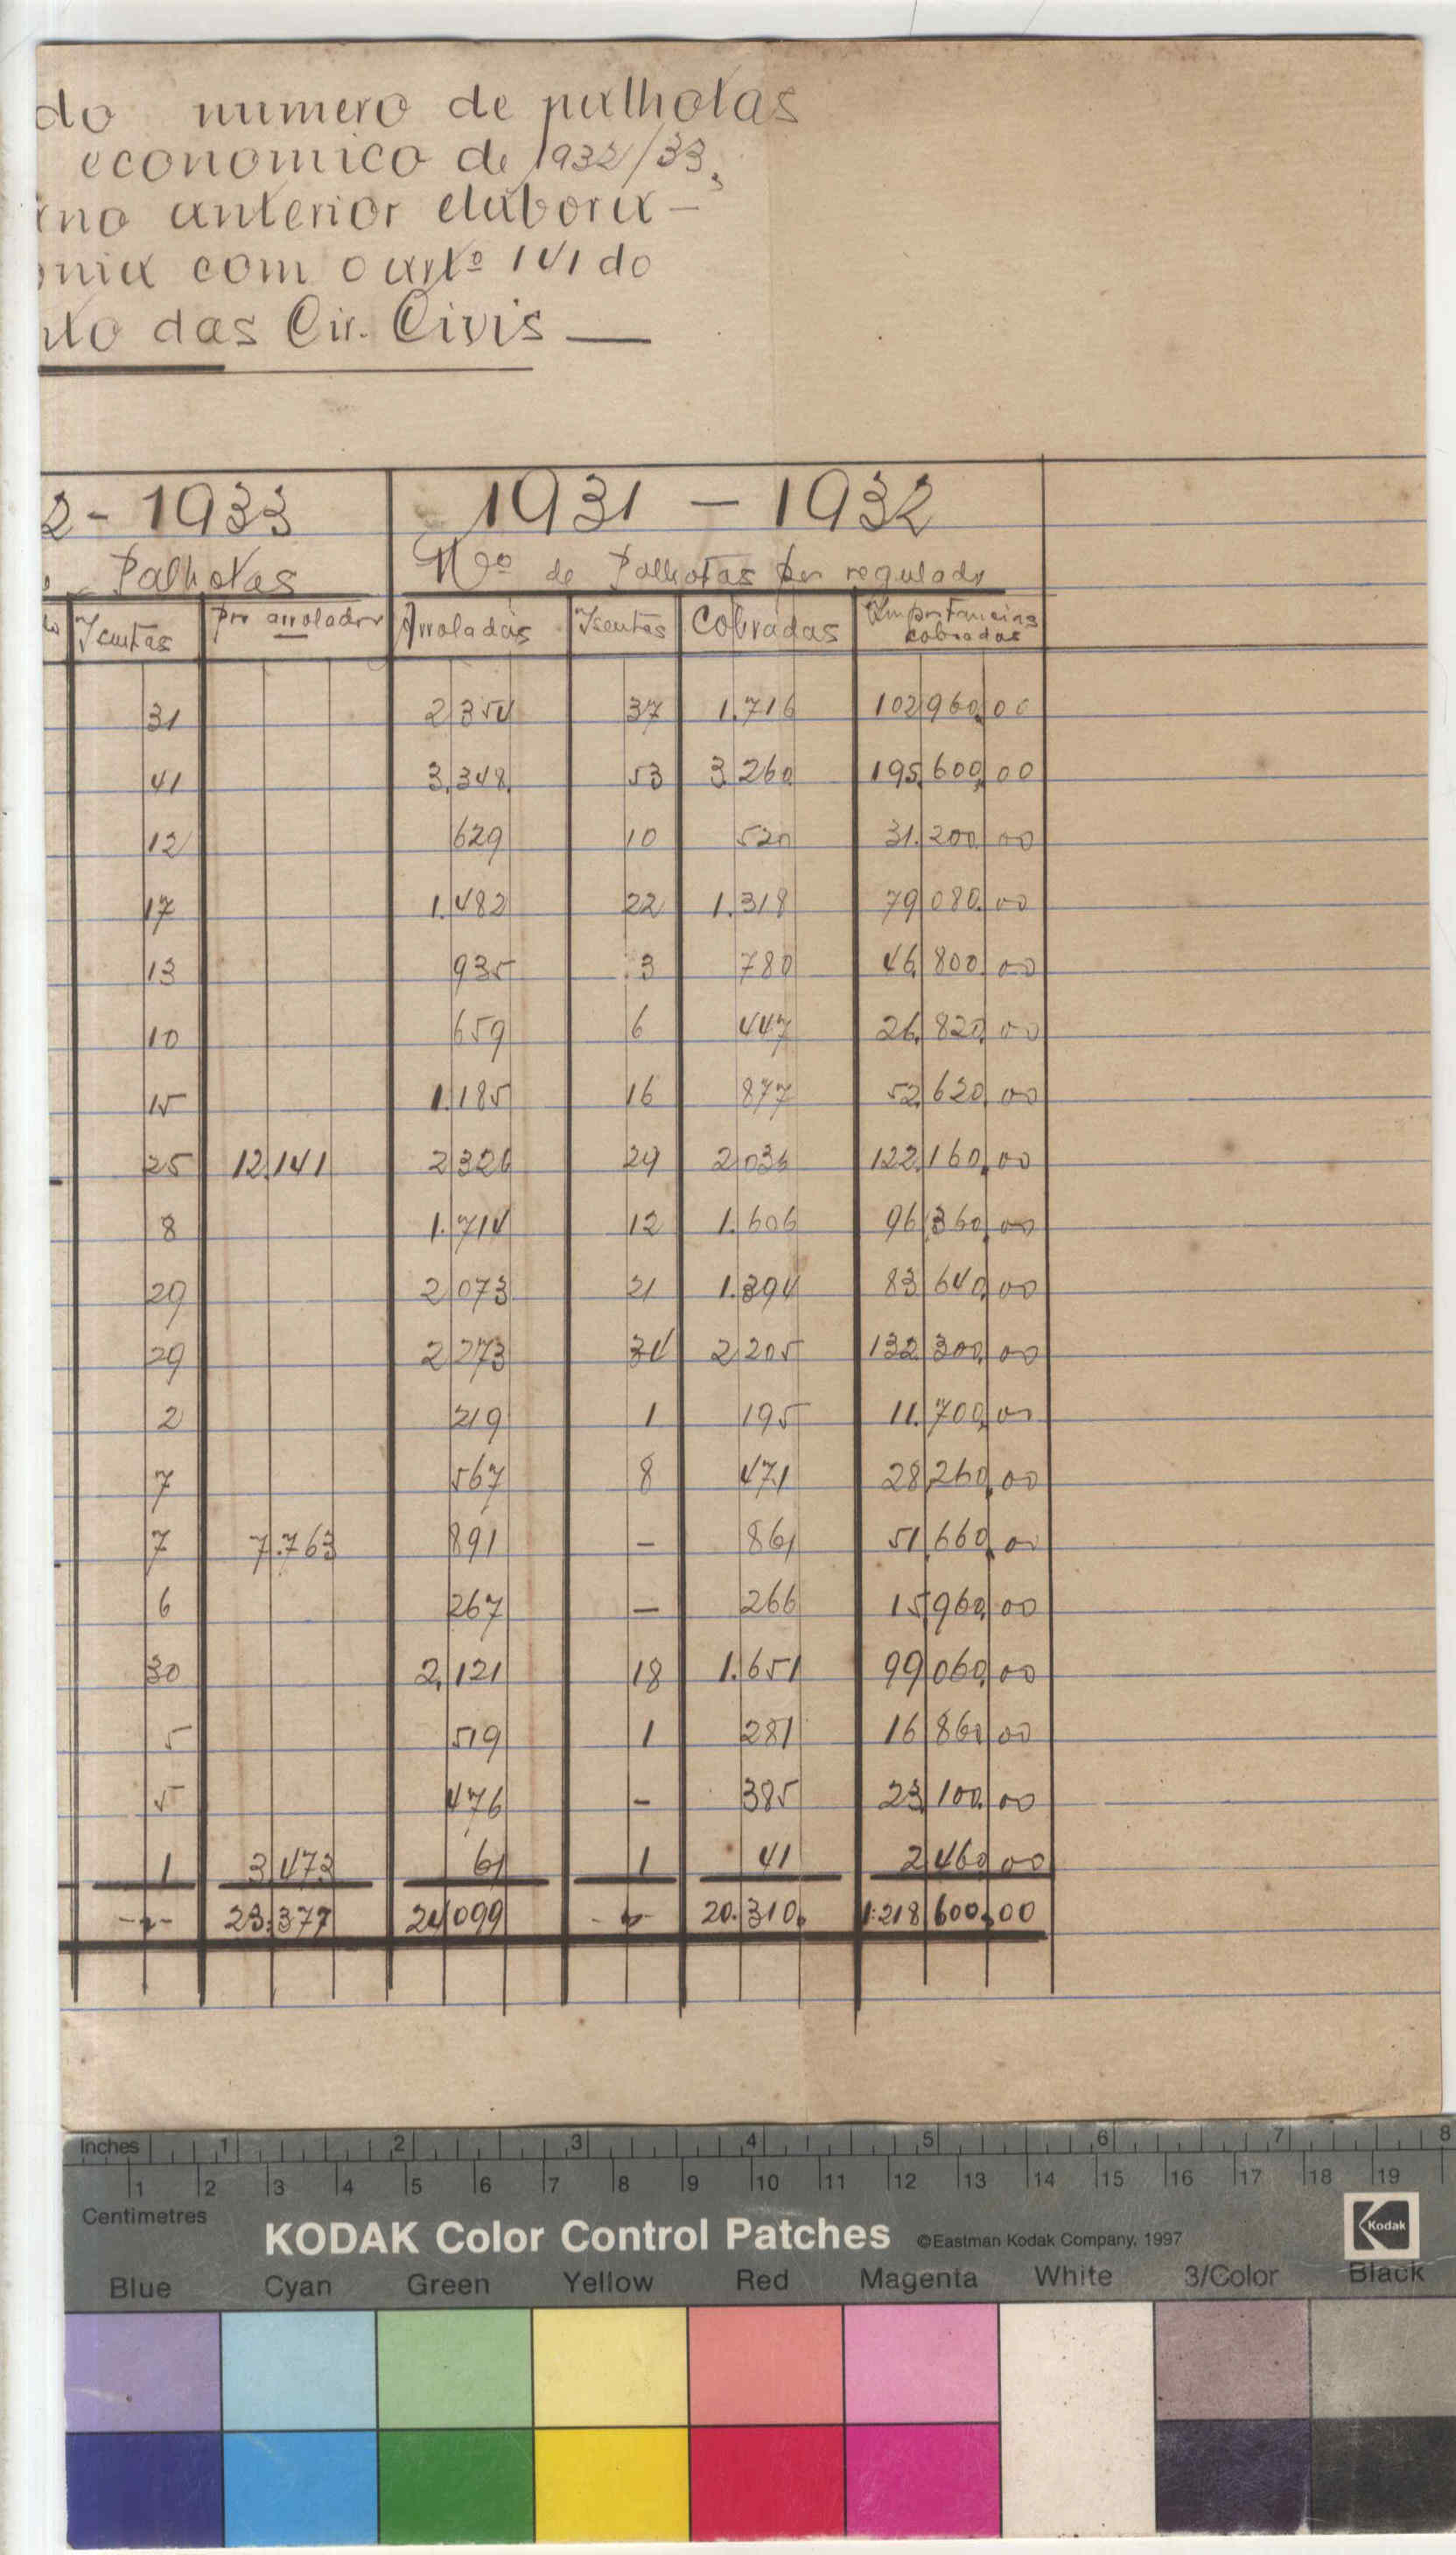 do numero de palhotas
economico de 1932/33,
no anterior elabora-
nia com o artº 141 do
nto das Cir. Civis —
2 - 1933 1931 - 1932
Palhotas Nº de Palhotas por regulado
Isentas por arrolador Arroladas Isentas Cobradas Importancias cobradas
31 2 354 37 1.716 102 960,00
41 3.348 53 3.260 195.600,00
12 629 10 520 31.200,00
17 1.482 22 1.318 79 080,00
13 935 3 780 46.800,00
10 659 6 447 26.820,00
15 1.185 16 877 52.620,00
25 12.141 2 326 29 2 036 122.160,00
8 1.714 12 1.606 96 360,00
29 2 073 21 1.394 83 640,00
29 2 273 34 2 205 132.300,00
2 219 1 195 11.700,00
7 567 8 471 28,260,00
7 7.763 891 - 861 51.660,00
6 267 - 266 15 960,00
30 2.121 18 1.651 99 060,00
5 519 1 281 16 860,00
5 476 - 385 23.100,00
1 3.473 61 1 41 2 460,00
-"- 23.377 24 099 -"- 20.310, 1.218 600,00
Inches 1 2 3 4 5 6 7 8
1 2 3 4 5 6 7 8 9 10 11 12 13 14 15 16 17 18 19
Centimetres
KODAK Color Control Patches ©Eastman Kodak Company, 1997 Kodak
Blue Cyan Green Yellow Red Magenta White 3/Color Black